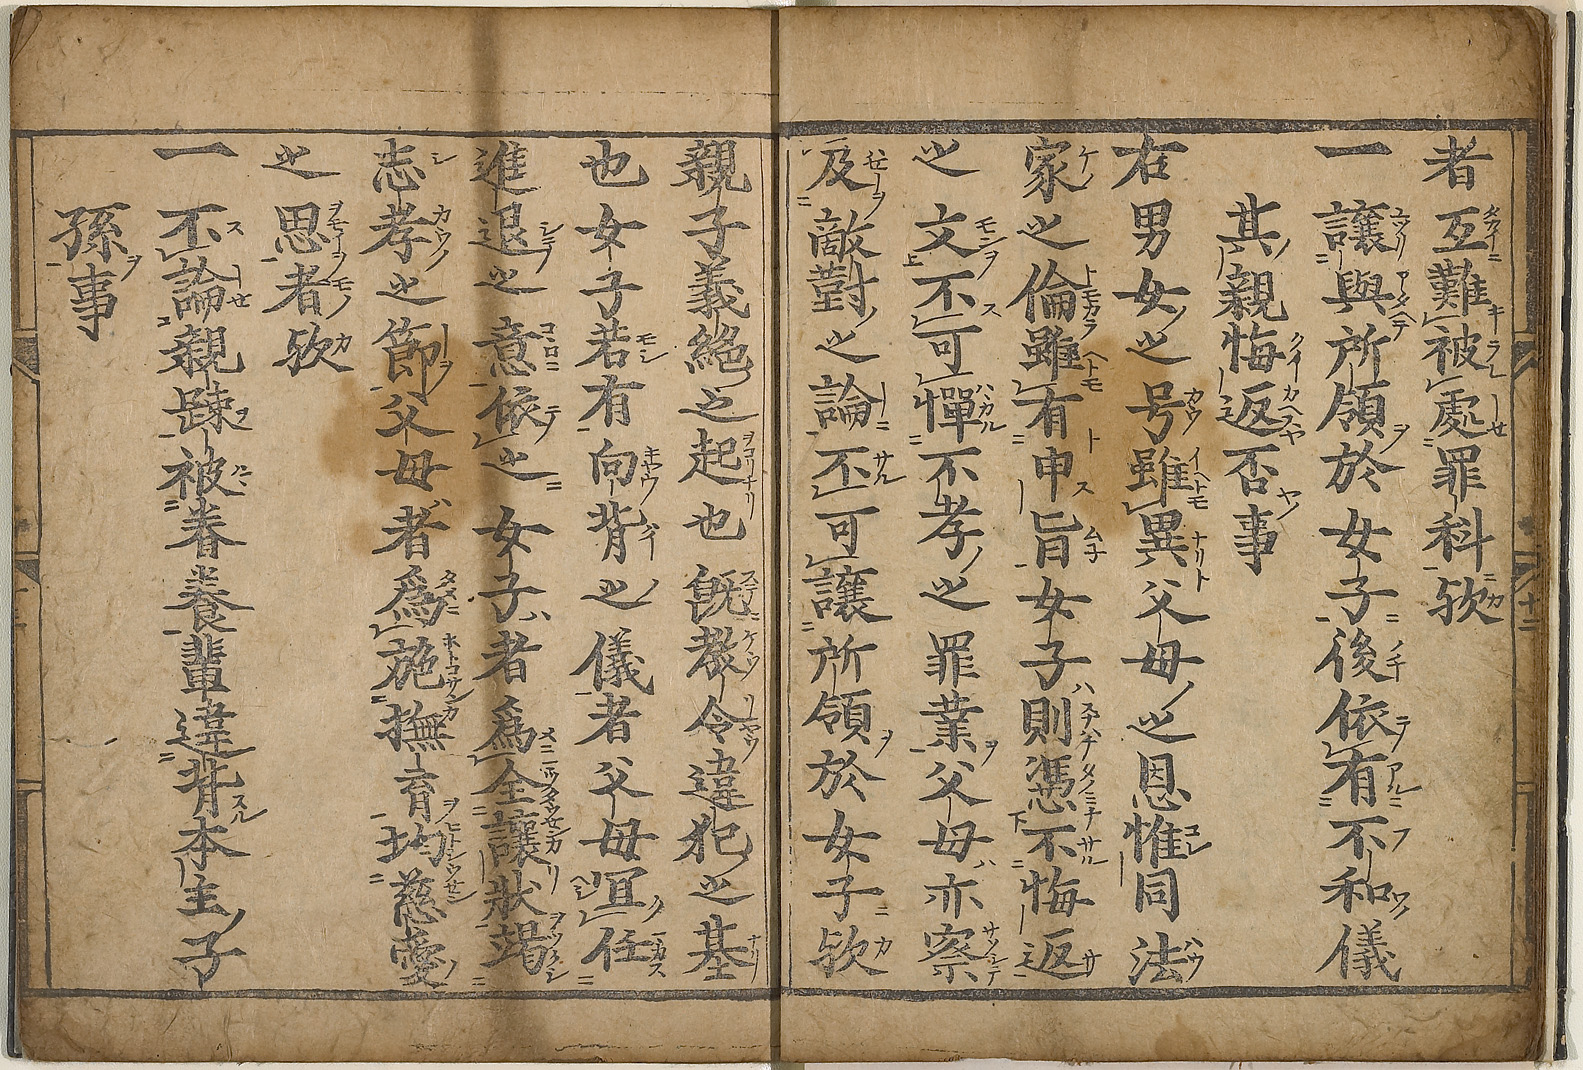 者互難被處罪科欤
一讓與所領於女子後依有不和儀
其親悔返否事
右男女之号雖異父母之恩惟同法
家之倫雖有申旨女子則憑不悔返
之文不可憚不孝之罪業父母亦察
及敵對之論不可讓所領於女子欤
親子義絕之起也既教令違犯之基
也女子若有向背之儀者父母宜任
進退之意依之女子者爲全讓狀竭
志孝之節父母者爲施撫育均慈愛
之思者欤
一不論親踈被眷養輩違背本主子
孫事